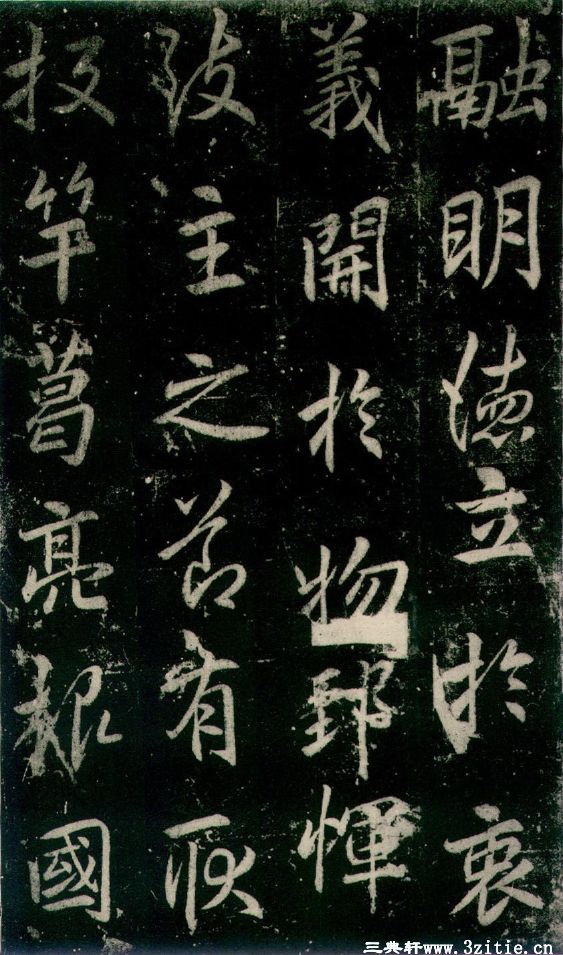 融明德立於衷
義開於物郅惲
致主之節有耿
投竿葛亮艱國
三典轩www.3zitie.cn